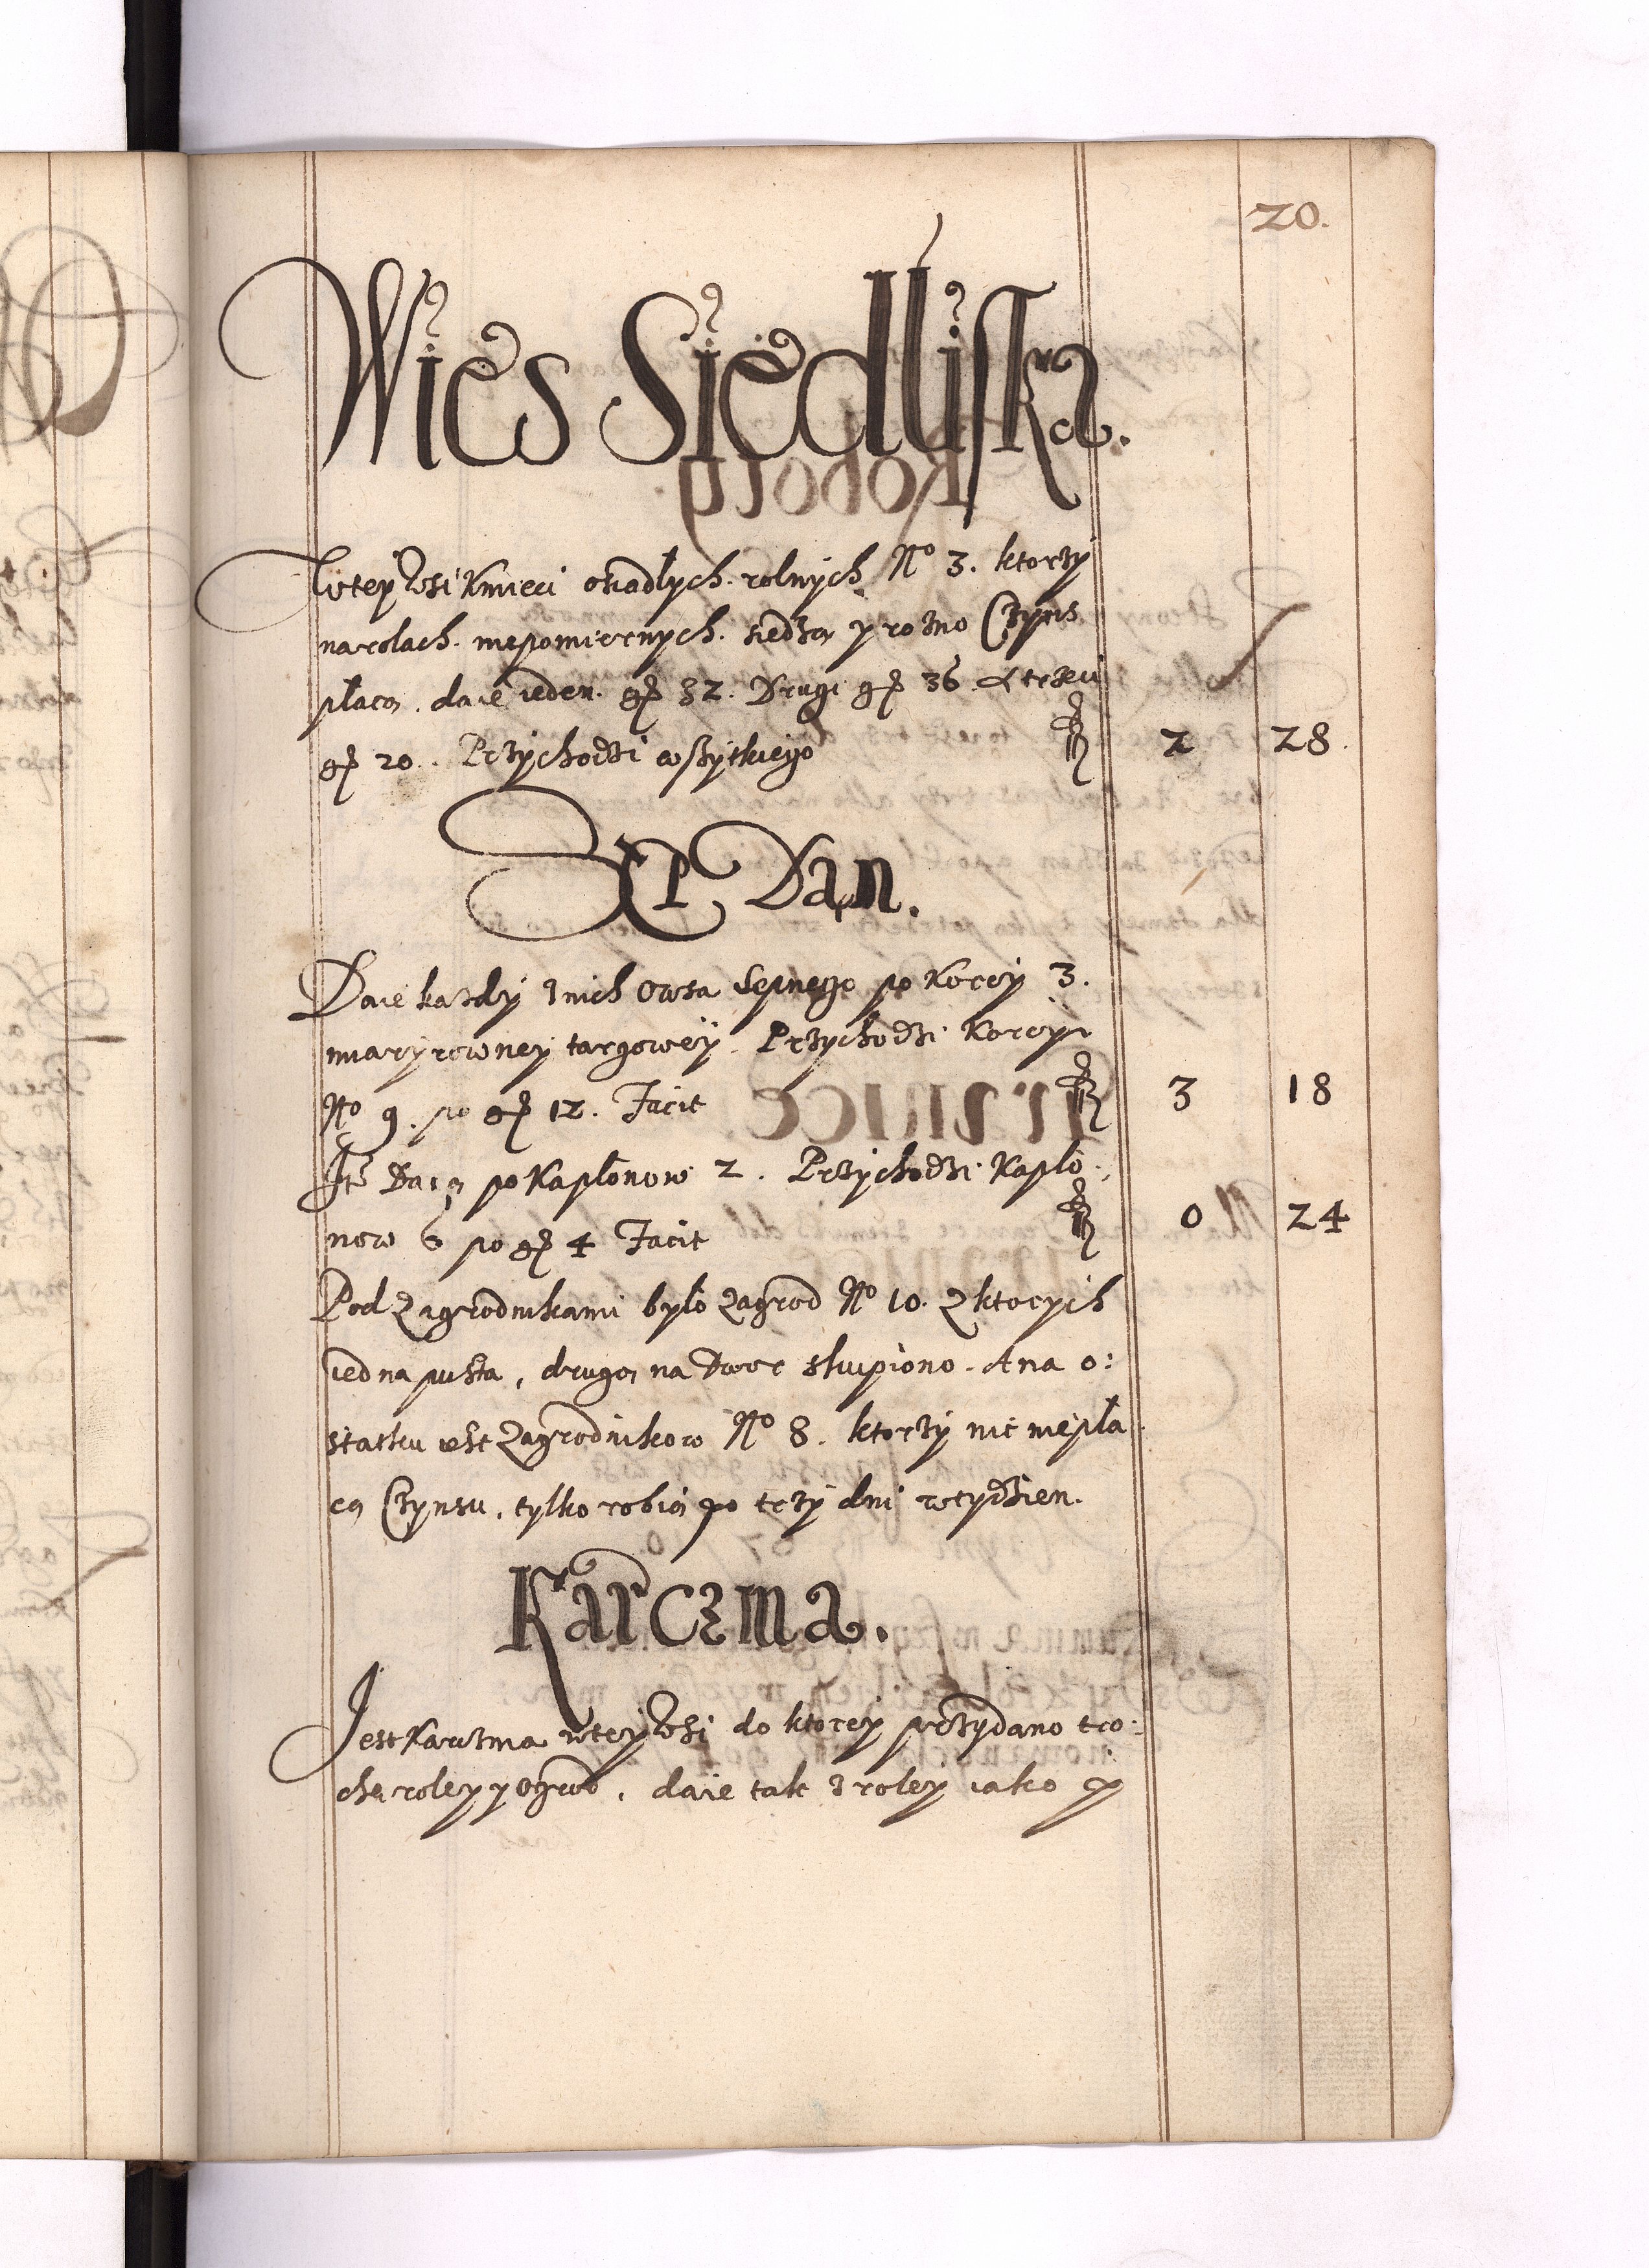 20.
Wieś Siedliska.
W tey Wsi Kmieci osiadłych rolnych No 3. ktorzy
na rolach niepomiernych siedzą y rozno Czynsz
płacą, daie ieden gr 32. Drugi gr 36. A trzeci
gr 20. Przychodzi wszytkiego fl 2 28.
Dan.
Daie kazdy z nich Owsa Sepnego po Korcy 3.
miary rowney targowey. Przychodzi Korcy
No 9. po gr 12. Facit fl 3 18
Ite Daią po Kapłonow 2. Przychodzi Kapło:
now 6 po gr 4 Facit fl 0 24
Pod Zagrodnikami było Zagrod No 10. z ktorych
iedna pusta, drugą na Dwor skupiono. A na o:
statku iest Zagrodnikow No 8. ktorzy nic niepła
cą Czynsu, tylko robią po trzy dni w tydzien.
Karczma.
Jest Karczma w tey Wsi do ktorey przydano tro:
chę roley y Ogrod, daie tak z roley iako y